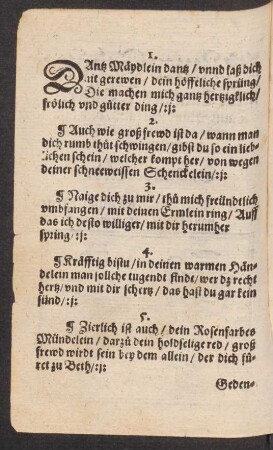 1.
DAntz Mäydlein dantz / vnnd laß dich
nit gerewen / dein höffeliche sprüng /
Die machen mich gantz hertzigklich /
frölich vnd gütter ding / :|:
2.
¶ Auch wie groß frewd ist da / wann man
dich rumb thüt schwingen / gibst du so ein lieb-
lichen schein / welcher kompt her / von wegen
deiner schneeweissen Schenckelein / :|:
3.
¶ Naige dich zu mir / thů mich freündtlich
vmbfangen / mit deinen Ermlein ring / Auff
das ich desto williger / mit dir herumher
spring / :|:
4.
¶ Kräfftig bistu / in deinen warmen Hän-
delein man solliche tugendt findt / wer dz recht
hertz / vnd mit dir schertz / das hast du gar kein
sünd / :|:
5.
¶ Zierlich ist auch / dein Rosenfarbes
Mündelein / darzů dein holdselige red / groß
frewd wirdt sein bey dem allein / der dich fü-
ret zu Beth / :|:
Geden-